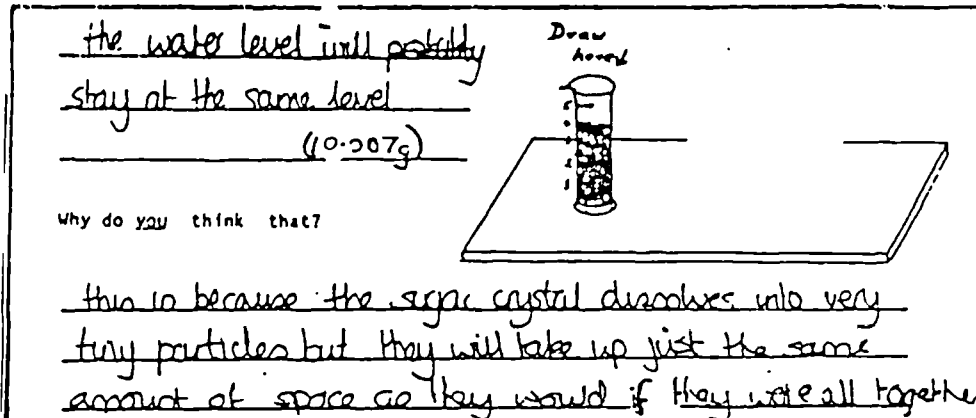 the water level will
stay at the same level
Draw
here
Why do you think that?
this is because the sugar crystal dissolves into very
tiny particles but they will take up just the same
amount of space as they would if they were all together